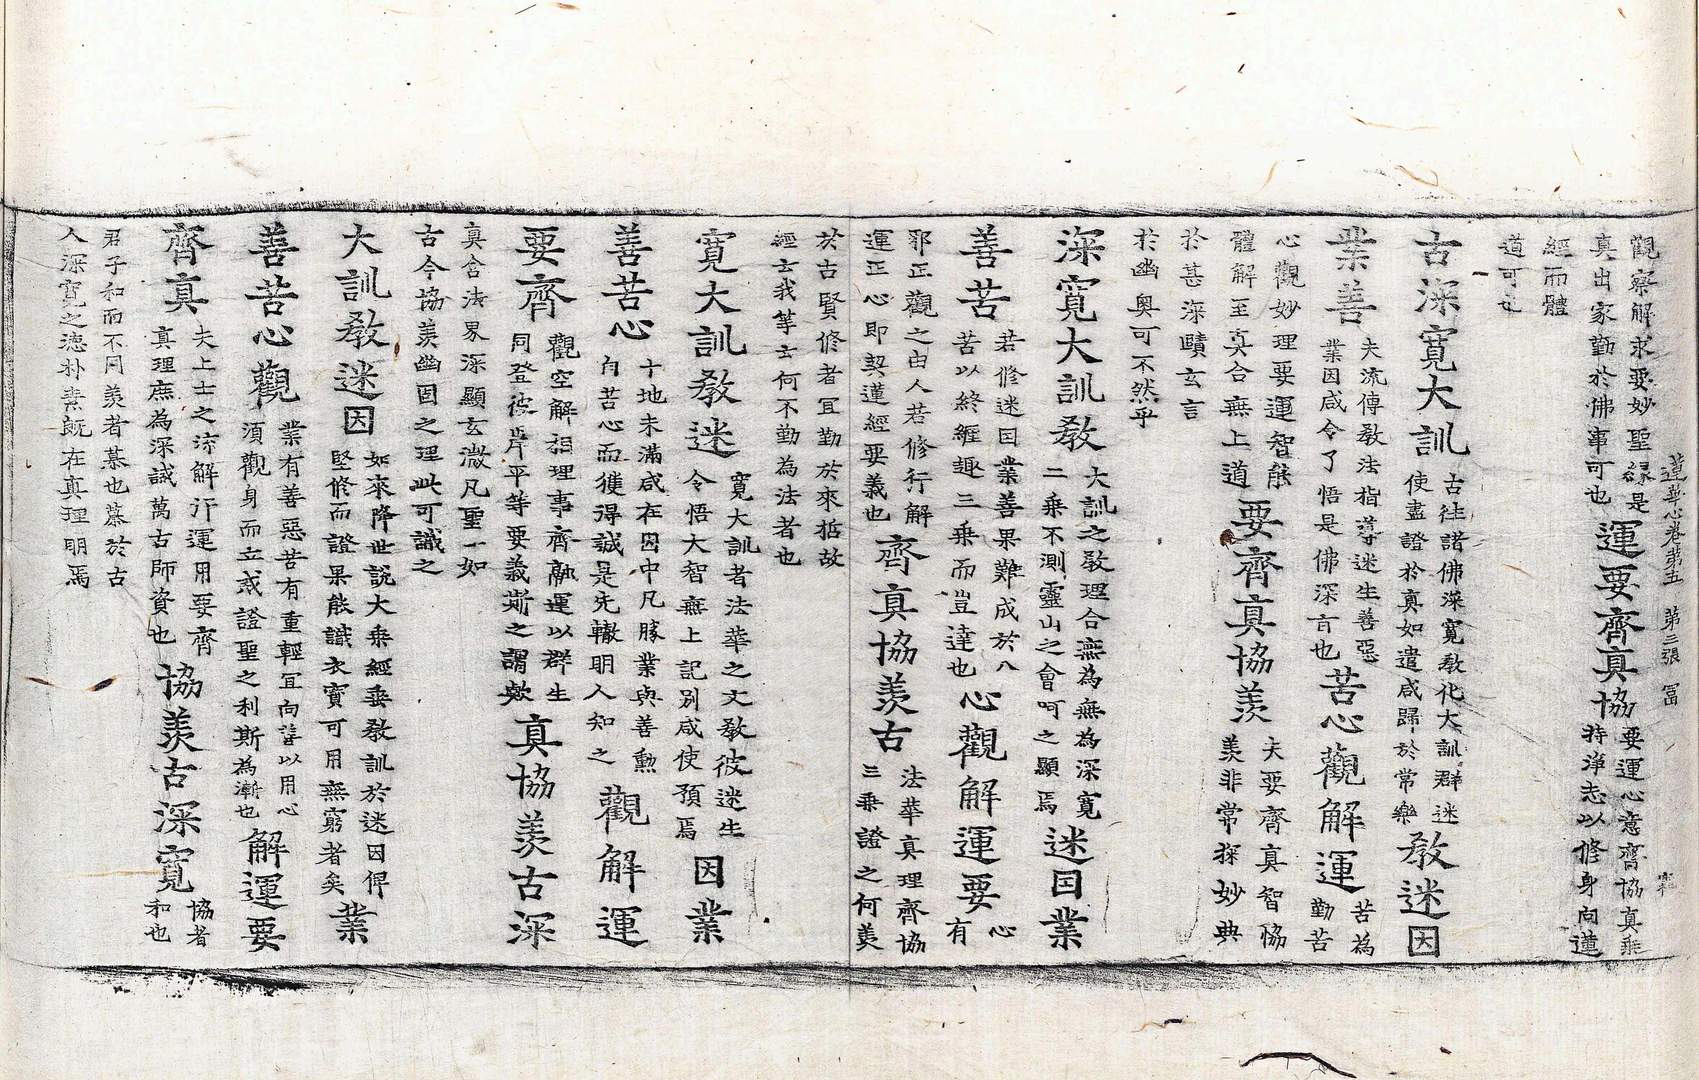 蓮華心卷第五 第三張 冨
觀察解求要妙聖緣是
真出家勤於佛事可也
運要齊真協
要運心意齊協真乘
持淨志以修身向道
經而體
道可也
古深寬大訓
古往諸佛深寬教化大訓群迷
使盡證於真如遣咸歸於常樂
教迷因
業善
夫流傳教法指導迷生善惡
業因咸令了悟是佛深言也
苦心觀解運
苦為
勤苦
心觀妙理要運智能
體解至真合無上道
要齊真協羨
夫要齊真智協
羨非常探妙典
於甚深賾玄言
於幽奧可不然乎
深寬大訓教
大訓之教理合無為無為深寬
二乘不測靈山之會呵之顯焉
迷因業
善苦
若修迷因業善果難成於八
苦以終纏趣三乘而豈達也
心觀解運要
心
有
邪正觀之由人若修行解
運正心即契道經要義也
齊真協羨古
法華真理齊協
三乘證之何羨
於古賢修者冝勤於來哲故
經云我等云何不勤為法者也
寬大訓教迷
寬大訓者法華之文教彼迷生
令悟大智無上記別咸使預焉
因業
善苦心
十地未滿咸在因中凡勝業與善勲
自苦心而獲得誠是先轍明人知之
觀解運
要齊
觀空解福理事齊融運以群生
同登彼岸平等要義斯之謂歟
真協羨古深
真含法界深顯玄微凡聖一如
古今協羨幽固之理此可誠之
大訓教迷因
如來降世說大乘經垂教訓於迷因俾
堅修而證果能識衣寶可用無窮者矣
業
善苦心觀
業有善惡苦有重輕冝向道以用心
須觀身而立或證聖之利斯為漸也
解運要
齊真
夫上士之深解行運用要齊
真理庶為深誡萬古師資也
協羨古深寬
協者
和也
君子和而不同羨者慕也慕於古
人深寬之德朴素旣在真理明焉